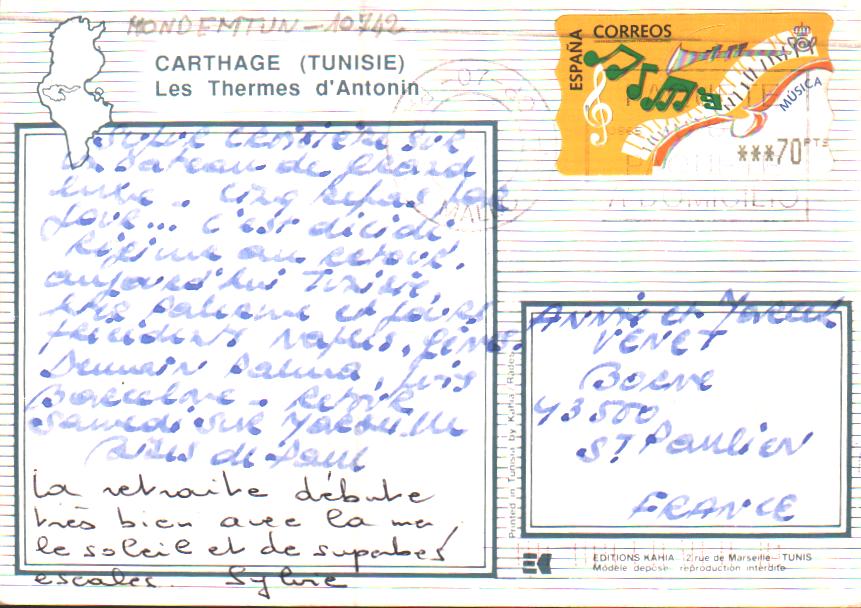 MONDEMTUN-10742
CARTHAGE (TUNISIE)
Les Thermes d'Antonin
ESPAÑA
CORREOS
MÚSICA
***70 PTS
A DOMICILIO
Super croisière sur
un bateau de grand
luxe. Cinq repas par
jour... c'est décidé
régime au retour.
aujourd'hui Tunisie,
hier Palerme et jours
précédents Naples, Gênes.
Demain Palma, puis
Barcelone. Retour
samedi sur Marseille
Bises de Paul
La retraite débute
très bien avec la mer,
le soleil et de superbes
escales. Sylvie
Annie et Marcel
VENET
Borne
43500
ST Paulien
FRANCE
Printed in Tunisia by Kahia / Radès
EDITIONS KAHIA 12 rue de Marseille - TUNIS
Modèle déposé reproduction interdite